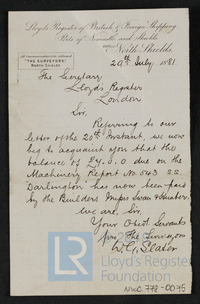 Lloyd's Register of British & Foreign Shipping
Ports of Newcastle and Shields
North Shields
"THE SURVEYORS"
29th July 1881
The Secretary
Lloyd's Register
London
Sir,
Referring to our
letter of the 20th Instant, we now
beg to acquaint you that the
balance of due on the
Machinery Report No. 543 S.S.
Darlington has now been paid
by the Builders Messrs Swan Hunter.
We are, Sir,
Your Obedt. Servants
pro The Surveyors
W. G. Slater
Lloyd's Register
Foundation